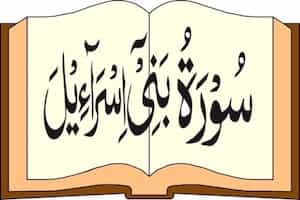 سُوْرَةُ بَنِيْٓ اِسْرَآءِيْلَ